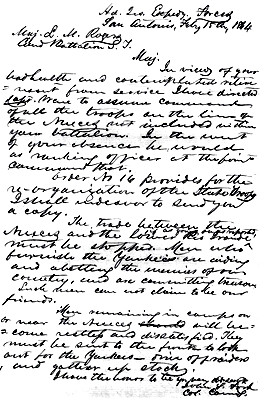 Hd. Qrs. Expedy. Forces
San Antonio, Feby 15th, 1864
Maj. E. M. Ross
2nd Battalion S. T.
Maj.
In view of your
bad health and contemplated retire-
ment from service I have directed
Capt. Ware to assume command
of all the troops on the line of
the Nueces not included within
your battalion. In the event
of your absence he would
as ranking officer at the point
command that.
Order No 14 provides for the
re-organization of the State Troops
I shall endeavor to send you
a copy.
The trade between the
Nueces and the Rio Grande
must be stopped. Men who
furnish the Yankees are aiding
and abetting the enemies of our
country, and are committing treason
Such men can not claim to be our
friends.
Men remaining in camps on
or near the Nueces will be-
come restless and dissatisfied. They
must be sent to the front to look
out for the Yankees - drive off raiders
and gather up stock.
I have the honor to be your obdt svt
John S. Ford
Col. Comdg.